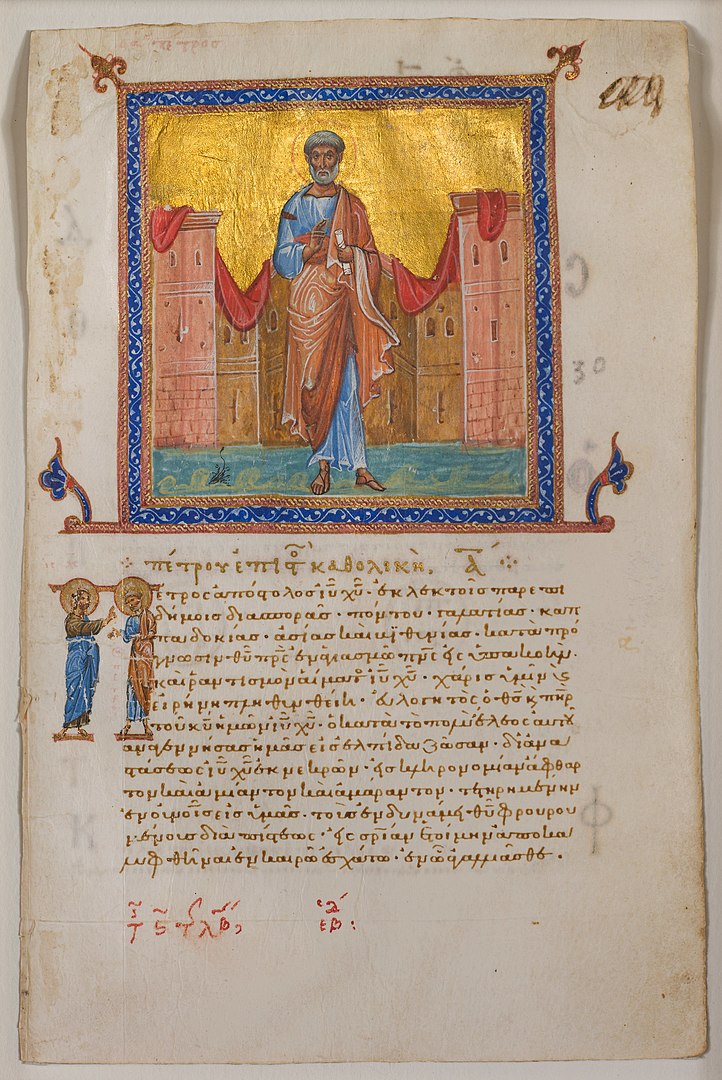 πέτρου ἐπιστ καθολικὴ. Α
Πέτρος ἀπόστολος ἰῦ χῦ· ἐκλεκτοῖς παρεπι
δήμοις διασπορᾶς· πόντου· γαλατίας· καπ
παδοκίας· ἀσίας καὶ βϊθυνίας· κατὰ πρό
γνωσιν θῦ πρς ἐν ἁγιασμῶ πνς εἰς ὑπακοὴν
καὶ ῥαντισμὸν αἵματος ἰῦ χῦ· χάρις ὑμῖν ϗ
εἰρήνη πληθυνθείη· εὐλογητὸς ὁ θς ϗ πηρ
τοῦ κυ ἡμῶν ἰῦ χῦ· ὁ κατὰ τὸ πολὺ ἔλεος αὐτοῦ
ἀναγεννήσας ἡμᾶς εἰς ἐλπίδα ζῶσαν· δι ἀνα
στάσεως ἰῦ χῦ ἐκ νεκρῶν· εἰς κληρονομίαν ἄφθαρ
τον καὶ ἀμίαντον καὶ ἀμάραντον· τετηρημένην
ἐν οὐνοῖς εἰς ὑμᾶς· τοὺς ἐν δυνάμει θῦ φρουρου
μένους διὰ πίστεως· εἰς σρίαν ἑτοίμην ἀποκα
λυφθῆναι ἐν καιρῶ ἐσχάτω· ἐν ὧ ἀγαλλιᾶσθε·